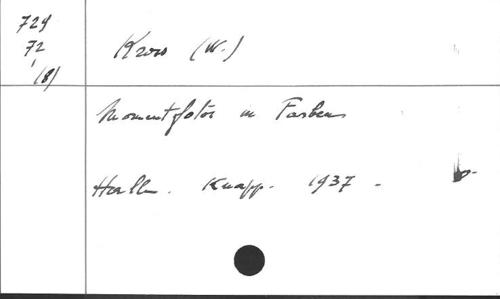 729
72
(8)
(W.)
Momentfotos in Farben
Halle. Knapp. 1937 -